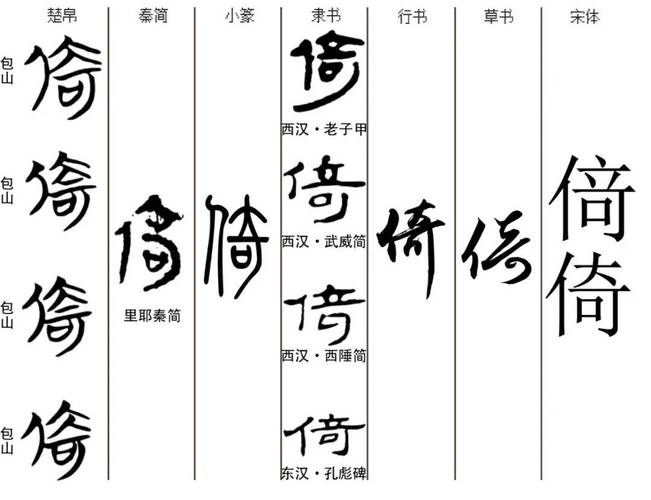 楚帛
秦简
小篆
隶书
行书
草书
宋体
包山
倚
包山
倚
包山
倚
包山
倚
倚
里耶秦简
倚
倚
西汉·老子甲
倚
西汉·武威简
倚
西汉·西陲简
倚
东汉·孔彪碑
倚
倚
倚